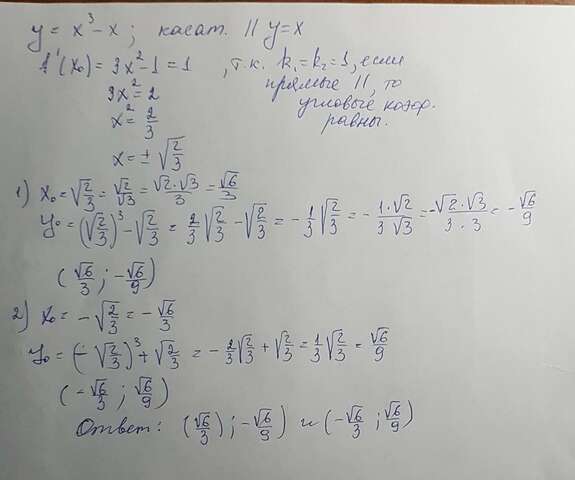 y = x³ - x ; касат. || y = x
f'(x₀) = 3x² - 1 = 1 , т.к. k₁ = k₂ = 1, если
3x² = 2 прямые ||, то
x² = 2/3 угловые коэф.
равны.
x = ± √(2/3)
1) x₀ = √(2/3) = √2/√3 = √2·√3/3 = √6/3
y₀ = (√(2/3))³ - √(2/3) = 2/3 √(2/3) - √(2/3) = - 1/3 √(2/3) = - 1·√2/3√3 = -√2·√3/3·3 = - √6/9
(√6/3 ; -√6/9)
2) x₀ = - √(2/3) = - √6/3
y₀ = (- √(2/3))³ + √(2/3) = - 2/3 √(2/3) + √(2/3) = 1/3 √(2/3) = √6/9
(-√6/3 ; √6/9)
Ответ: (√6/3) ; -√6/9) и (-√6/3 ; √6/9)